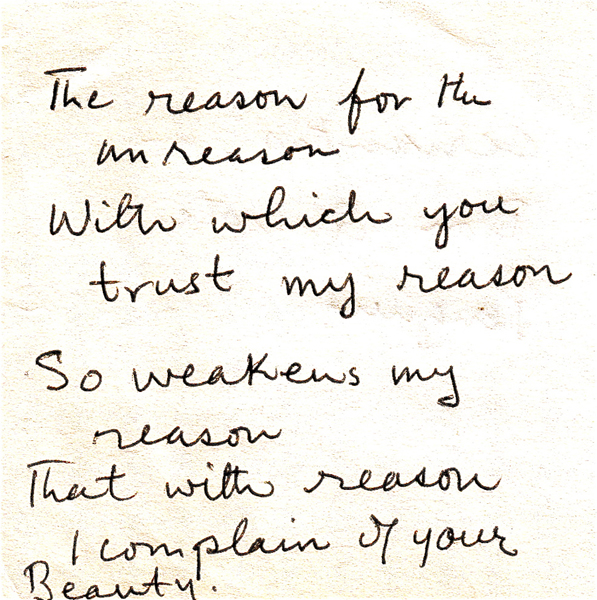 The reason for the
unreason
With which you
trust my reason
So weakens my
reason
That with reason
I complain of your
Beauty.